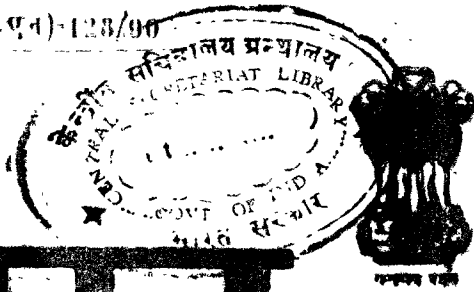 एन)-128/90
केन्द्रीय सचिवालय ग्रन्थालय
CENTRAL SECRETARIAT LIBRARY
GOVT OF INDIA
भारत सरकार
सत्यमेव जयते